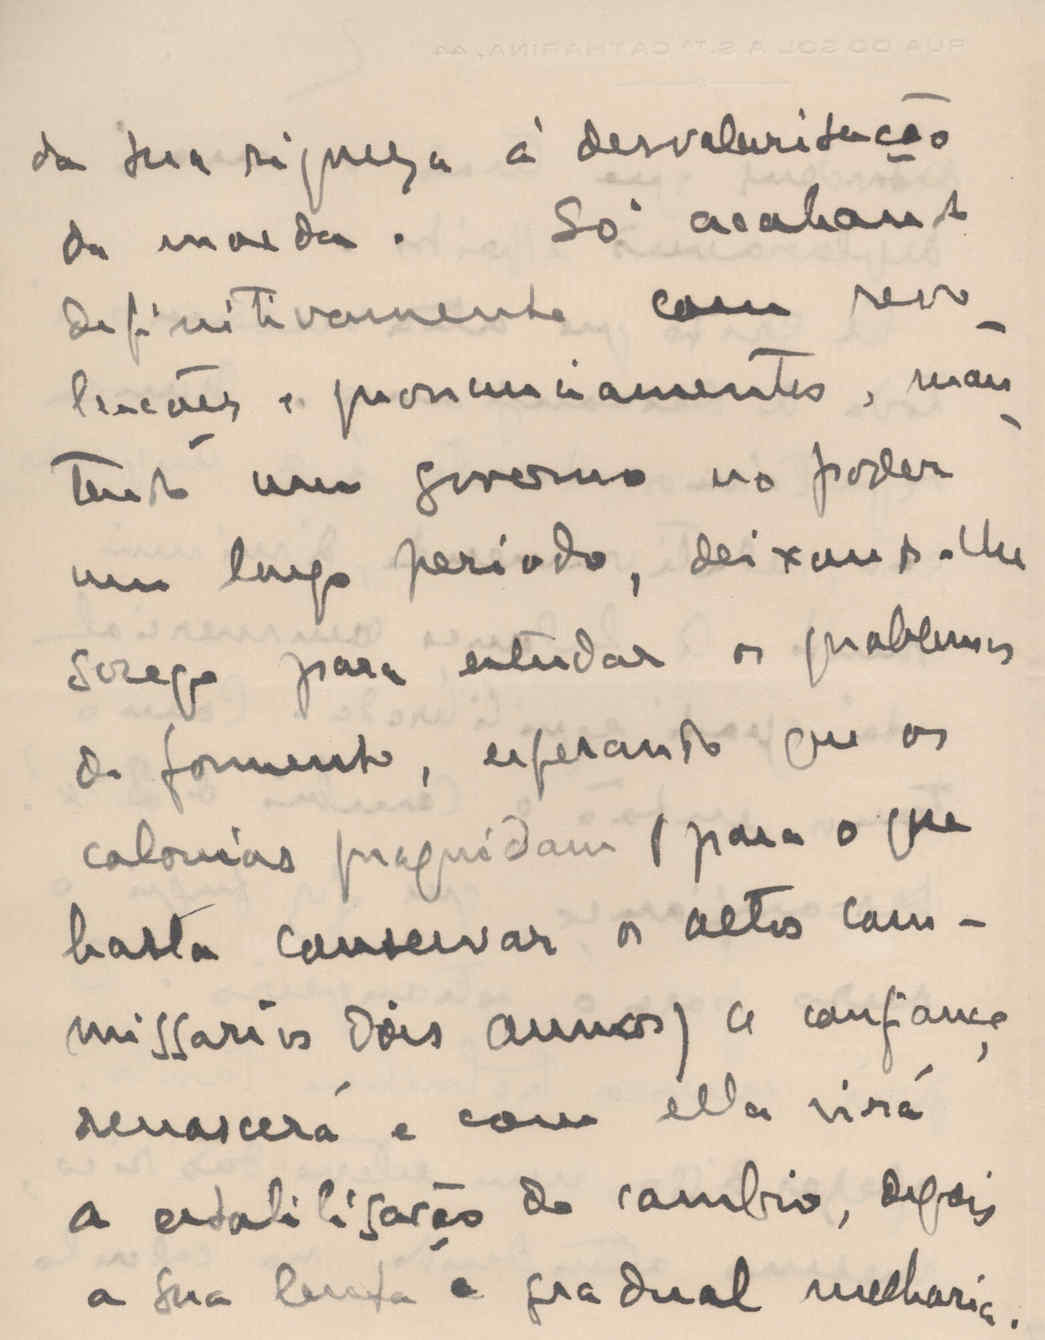 da sua riqueza á desvalorisação
da moeda. Só acabando
definitivamente com revo
luções e pronunciamentos, man
tendo um governo no poder
um longo periodo, deixando-lhe
socego para estudar os problemas
do fomento, esperando que as
colonias progridam (para o que
basta conservar os altos com-
missarios dois annos) a confiança
renascerá e com ella virá
a estabilisação do cambio, depois
a sua lenta e gradual melhoria.